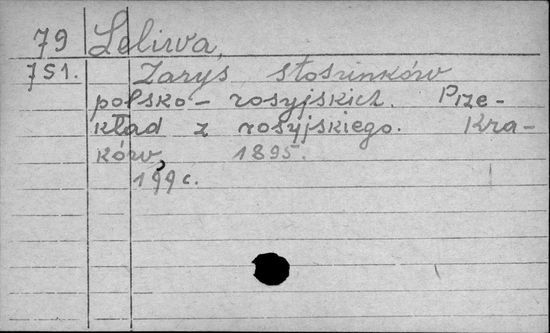 79 Leliwa,
751. Zarys stosunków
polsko-rosyjskich. Prze-
kład z rosyjskiego. Kra-
ków, 1895.
199 c.